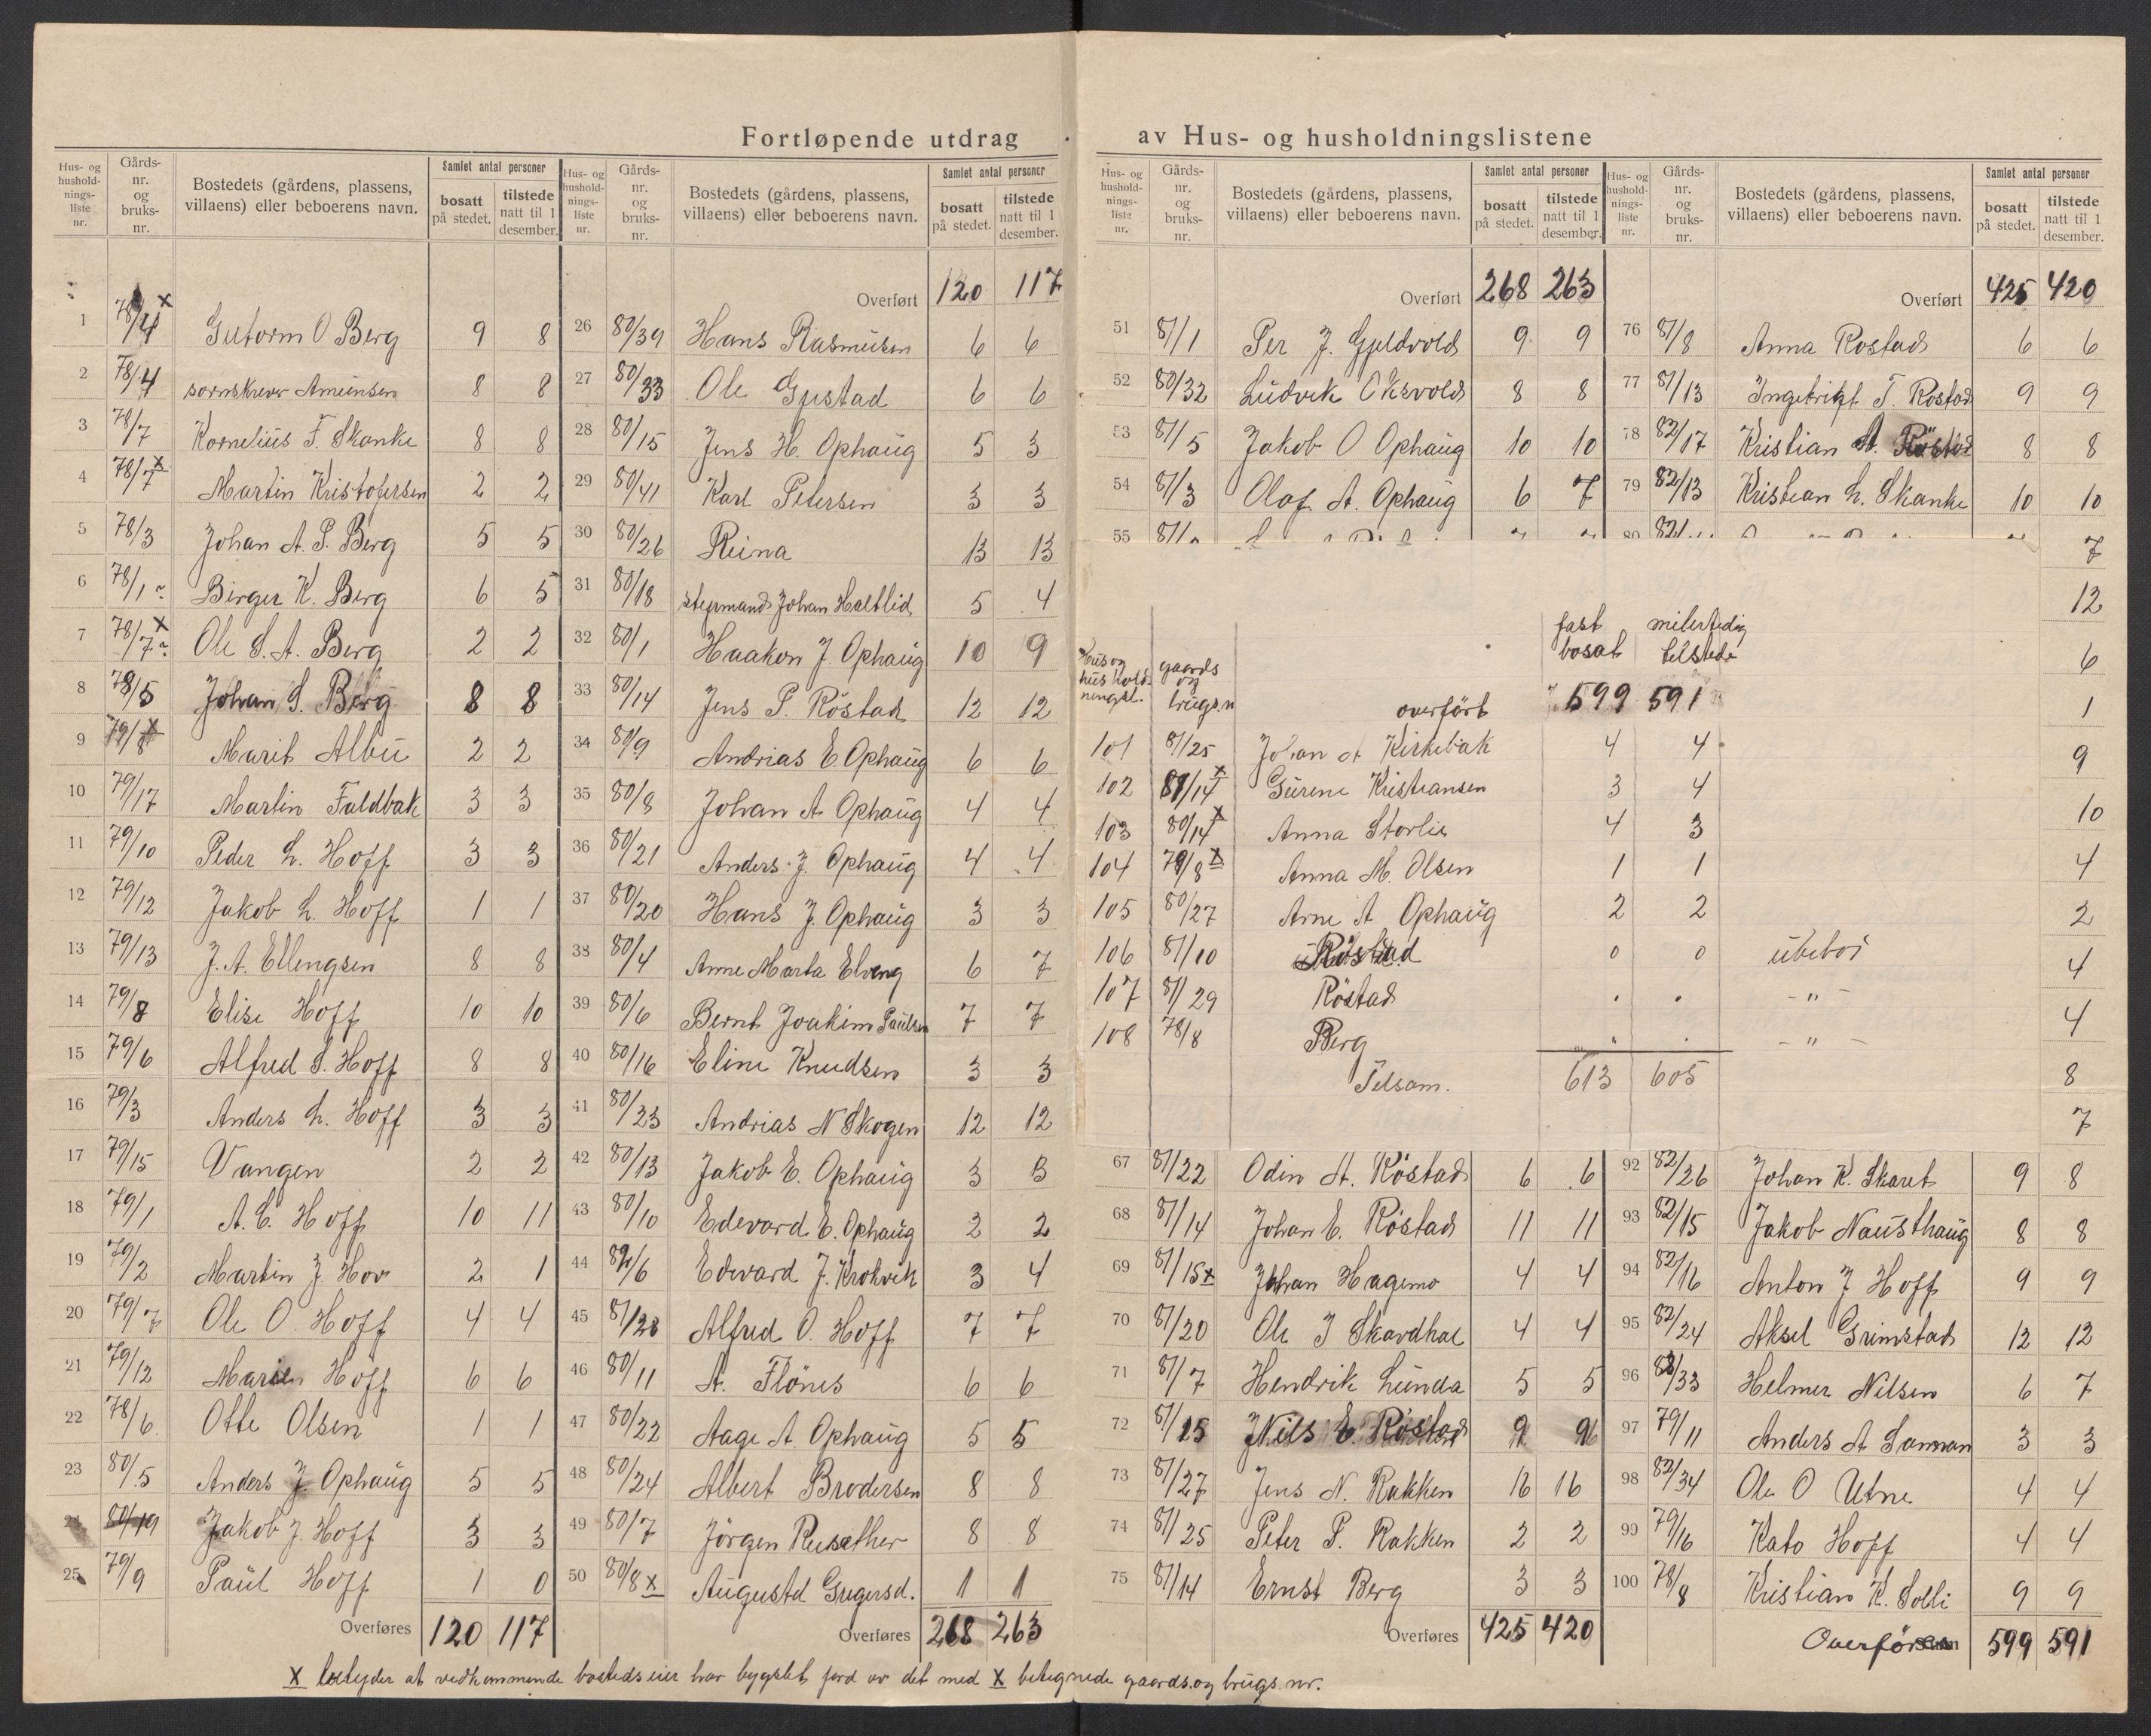 Fortløpende utdrag av Hus- og husholdningslistene
Hus- og husholdnings-liste nr. Gårds-nr. og bruks-nr. Bostedets (gårdens, plassens, villaens) eller beboerens navn. Samlet antal personer bosatt på stedet. tilstede natt til 1 desember.
1 78/4 x Gutorm O Berg 9 8
2 78/4 sornskrever Amundsen 8 8
3 78/7 Kornelius F. Skanke 8 8
4 78/7 x Martin Kristofersen 2 2
5 78/3 Johan A. P. Berg 5 5
6 78/1 Birger K. Berg 6 5
7 78/7 x Ole S. A. Berg 2 2
8 78/5 Johan S. Berg 8 8
9 79/8 x Marit Albu 2 2
10 79/17 Martin Faldbak 3 3
11 79/10 Peder L. Hoff 3 3
12 79/12 Jakob L. Hoff 1 1
13 79/13 J. A. Ellengsen 8 8
14 79/8 Elise Hoff 10 10
15 79/6 Alfred S. Hoff 8 8
16 79/3 Anders L. Hoff 3 3
17 79/15 Vangen 2 2
18 79/1 A. C. Hoff 10 11
19 79/2 Martin J. Hov 2 1
20 79/7 Ole O. Hoff 4 4
21 79/12 Marien Hoff 6 6
22 78/6 Otte Olsen 1 1
23 80/5 Anders J. Ophaug 5 5
24 80/19 Jakob J. Hoff 3 3
25 79/9 Paul Hoff 1 0
Overføres 120 117
Hus- og husholdnings-liste nr. Gårds-nr. og bruks-nr. Bostedets (gårdens, plassens, villaens) eller beboerens navn. Samlet antal personer bosatt på stedet. tilstede natt til 1 desember.
Overført 120 117
26 80/39 Hans Rasmusen 6 6
27 80/33 Ole Gustad 6 6
28 80/15 Jens H. Ophaug 5 3
29 80/41 Karl Petersen 3 3
30 80/26 Reina 13 13
31 80/18 styrmand Johan Haltlid 5 4
32 80/1 Haakon J Ophaug 10 9
33 80/14 Jens P. Röstad 12 12
34 80/9 Andrias E Ophaug 6 6
35 80/8 Johan A Ophaug 4 4
36 80/21 Anders J. Ophaug 4 4
37 80/20 Hans J. Ophaug 3 3
38 80/4 Anne Marta Elveng 6 7
39 80/6 Bernt Joakim Paulsen 7 7
40 80/16 Eline Knudsen 3 3
41 80/23 Andrias N Skogen 12 12
42 80/13 Jakob E. Ophaug 3 3
43 80/10 Edevard E. Ophaug 2 2
44 82/6 Edevard J. Krokvik 3 4
45 81/28 Alfred O. Hoff 7 7
46 80/11 A. Flönes 6 6
47 80/22 Aage A. Ophaug 5 5
48 80/24 Albert Brodersen 8 8
49 80/7 Jörgen Rusether 8 8
50 80/8 x Augusta Gregersd. 1 1
Overføres 268 263
Hus- og husholdnings-liste nr. Gårds-nr. og bruks-nr. Bostedets (gårdens, plassens, villaens) eller beboerens navn. Samlet antal personer bosatt på stedet. tilstede natt til 1 desember.
Overført 268 263
51 81/1 Per J. Gjeldvold 9 9
52 80/32 Ludvik Oksvold 8 8
53 81/5 Jakob O Ophaug 10 10
54 81/3 Olaf A. Ophaug 6 7
55
Hus- og husholdnings-liste nr. Gårds-nr. og bruks-nr. Bostedets (gårdens, plassens, villaens) eller beboerens navn. Samlet antal personer bosatt på stedet. tilstede natt til 1 desember.
Overført 425 420
76 81/8 Anna Rostad 6 6
77 81/13 Ingebrigt T. Rostad 9 9
78 82/17 Kristian A. Röstad 8 8
79 82/13 Kristian L. Skanke 10 10
80
7
12
6
1
9
10
4
2
4
4
8
7
Hus og husholdningsl. gaards og brugs.n fast bosat milertedig telstede
overfört 599 591
101 81/25 Johan A Kirkebak 4 4
102 81/14 x Gurene Kristiansen 3 4
103 80/14 x Anna Storlie 4 3
104 79/8 x Anna M. Olsen 1 1
105 80/27 Arne A Ophaug 2 2
106 81/10 Röstad 0 0 ubeboi
107 81/29 Röstad . . -"-
108 78/8 Berg " . -"-
Telsam. 613 605
67 81/22 Odin A. Röstad 6 6
68 81/14 Johan E. Röstad 11 11
69 81/15 x Johan Hagemo 4 4
70 81/20 Ole J Skavdhal 4 4
71 81/7 Hendrik Lunda 5 5
72 81/15 Nils E. Röstad 9
73 81/27 Jens N. Rakken 16 16
74 81/25 Peter P. Rakken 2 2
75 81/14 Ernst Berg 3 3
Overføres 425 420
92 82/26 Johan K. Skaret 9 8
93 82/15 Jakob Nausthaug 8 8
94 82/16 Anton J Hoff 9 9
95 82/24 Aksel Grimstad 12 12
96 82/33 Helmer Nilsen 6 7
97 79/11 Anders A Sannan 3 3
98 82/34 Ole O Utne 4 4
99 79/16 Kato Hoff 4 4
100 78/8 Kristian K. Solli 9 9
Overföres 599 591
x betyder at vedkommende bosteds eier har bygslet jord av det med x betegnede gaards og brugs nr.